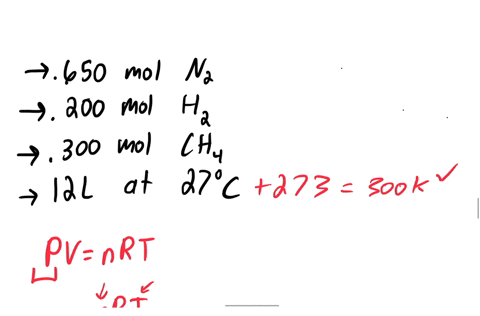 → .650 mol N₂
→ .200 mol H₂
→ .300 mol CH₄
→ 12L at 27°C +273 = 300K ✓
PV = nRT
nRT